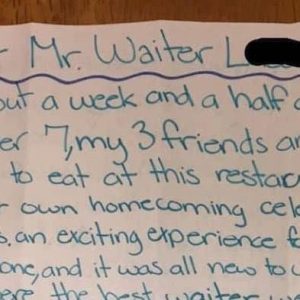 Mr. Waiter L
out a week and a half
er 7, my 3 friends an
to eat at this resta
r own homecoming cele
s, an exciting experience f
one, and it was all new to u
ere the best waiter w